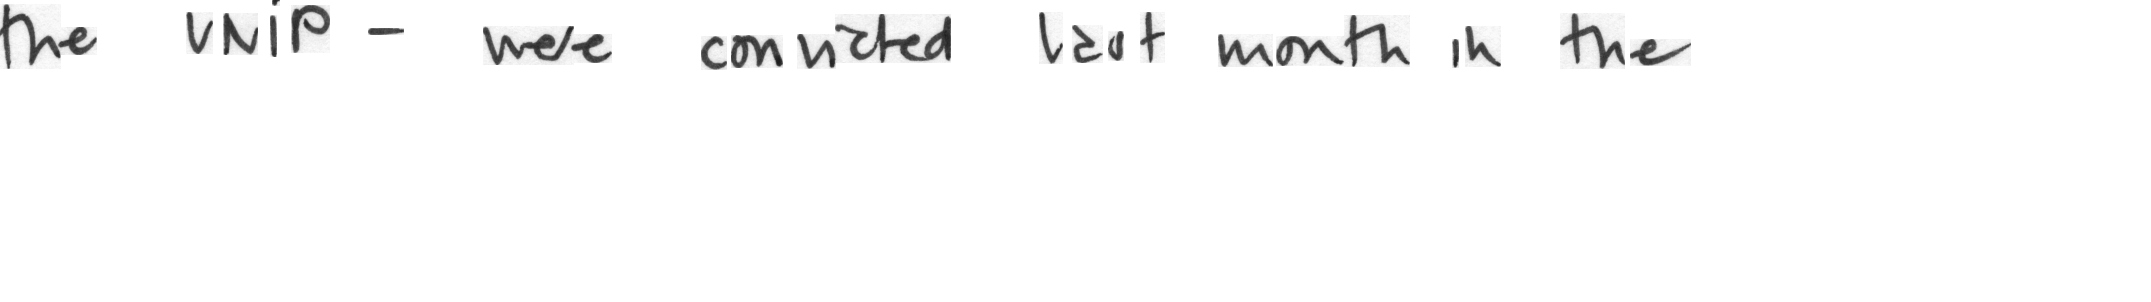 the UNIP - were convicted last month in the